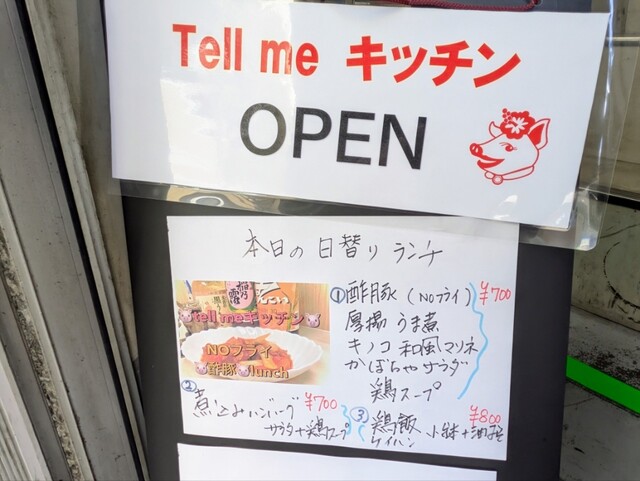 Tell me キッチン
OPEN
本日の日替り ランチ
tell meキッチン
NOフライ
酢豚 lunch
① 酢豚 (NOフライ) ¥700
厚揚 うま煮
キノコ 和風マリネ
かぼちゃサラダ
鶏スープ
② 煮込みハンバーグ ¥700
サラダ+鶏スープ
③ 鶏飯 ¥800
ケイハン 小鉢+